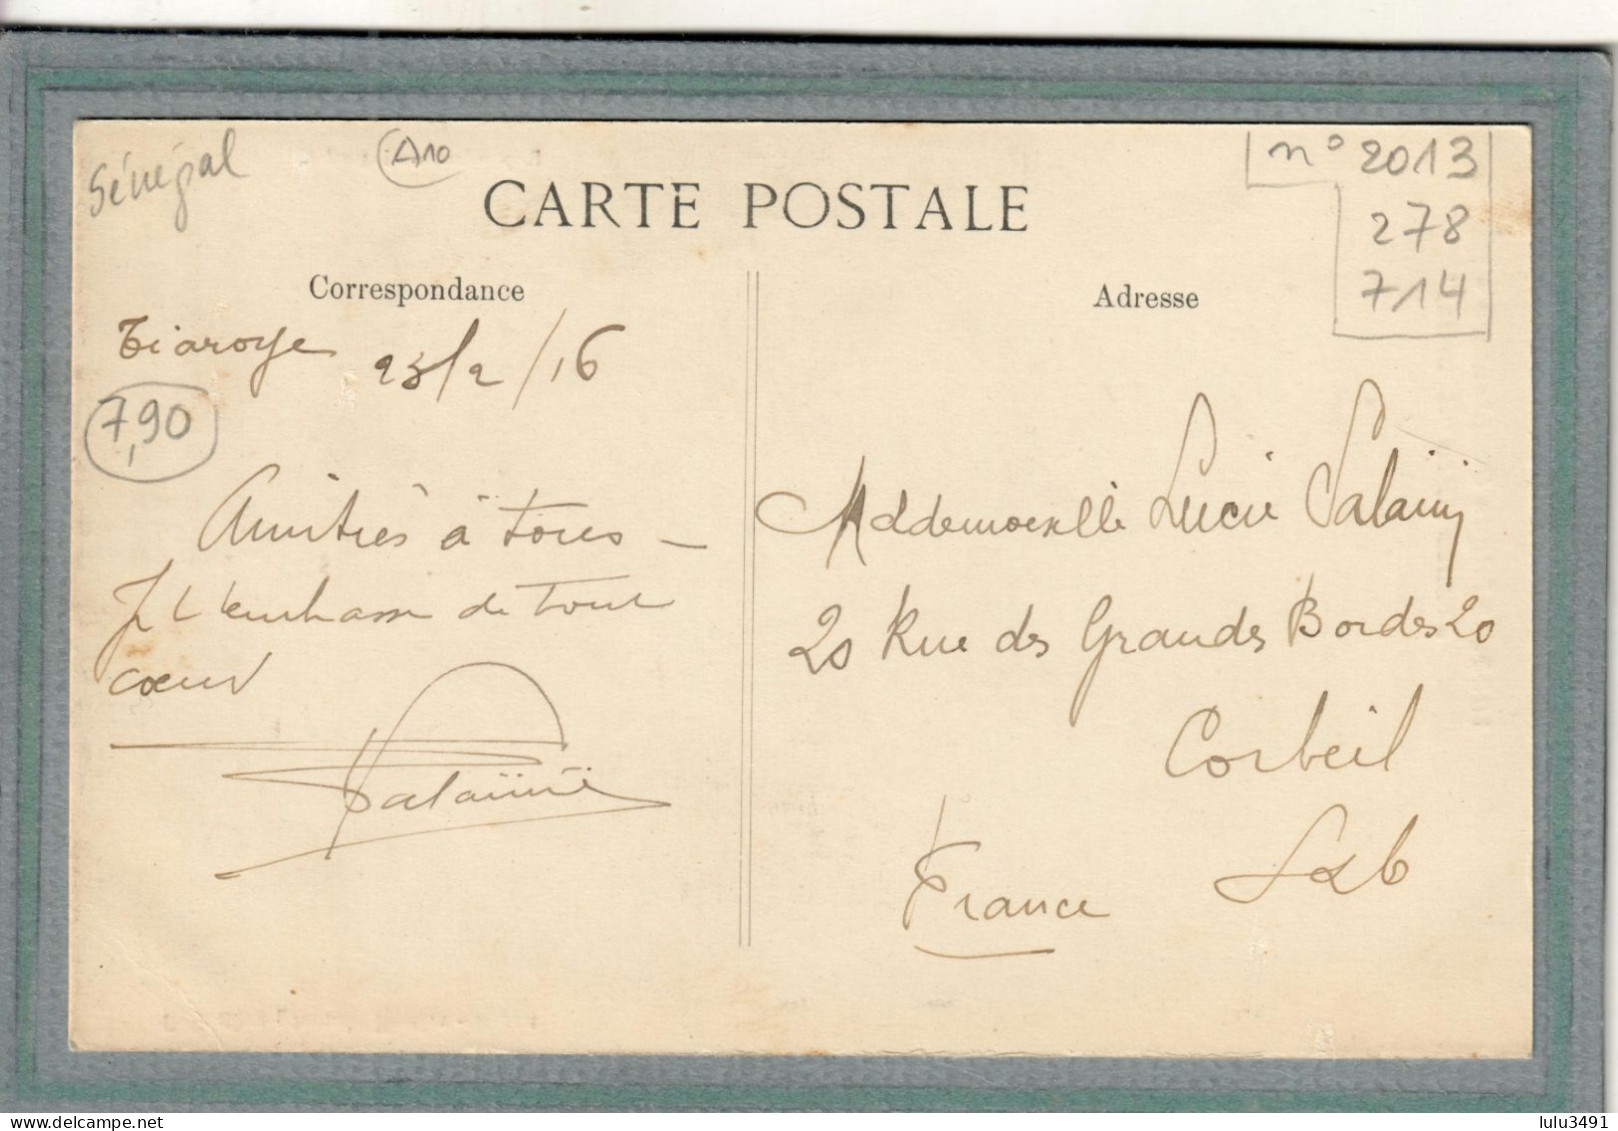 Sénégal
A10
n° 2013
278
714
CARTE POSTALE
Correspondance
Adresse
Tiaroye 23/2/16
7,90
Amitiés à tous –
Je t'embrasse de tout
cœur
Mademoiselle Lucie
20 Rue des Grandes Bordes 20
Corbeil
S&O
France
delcampe.net
lulu3491